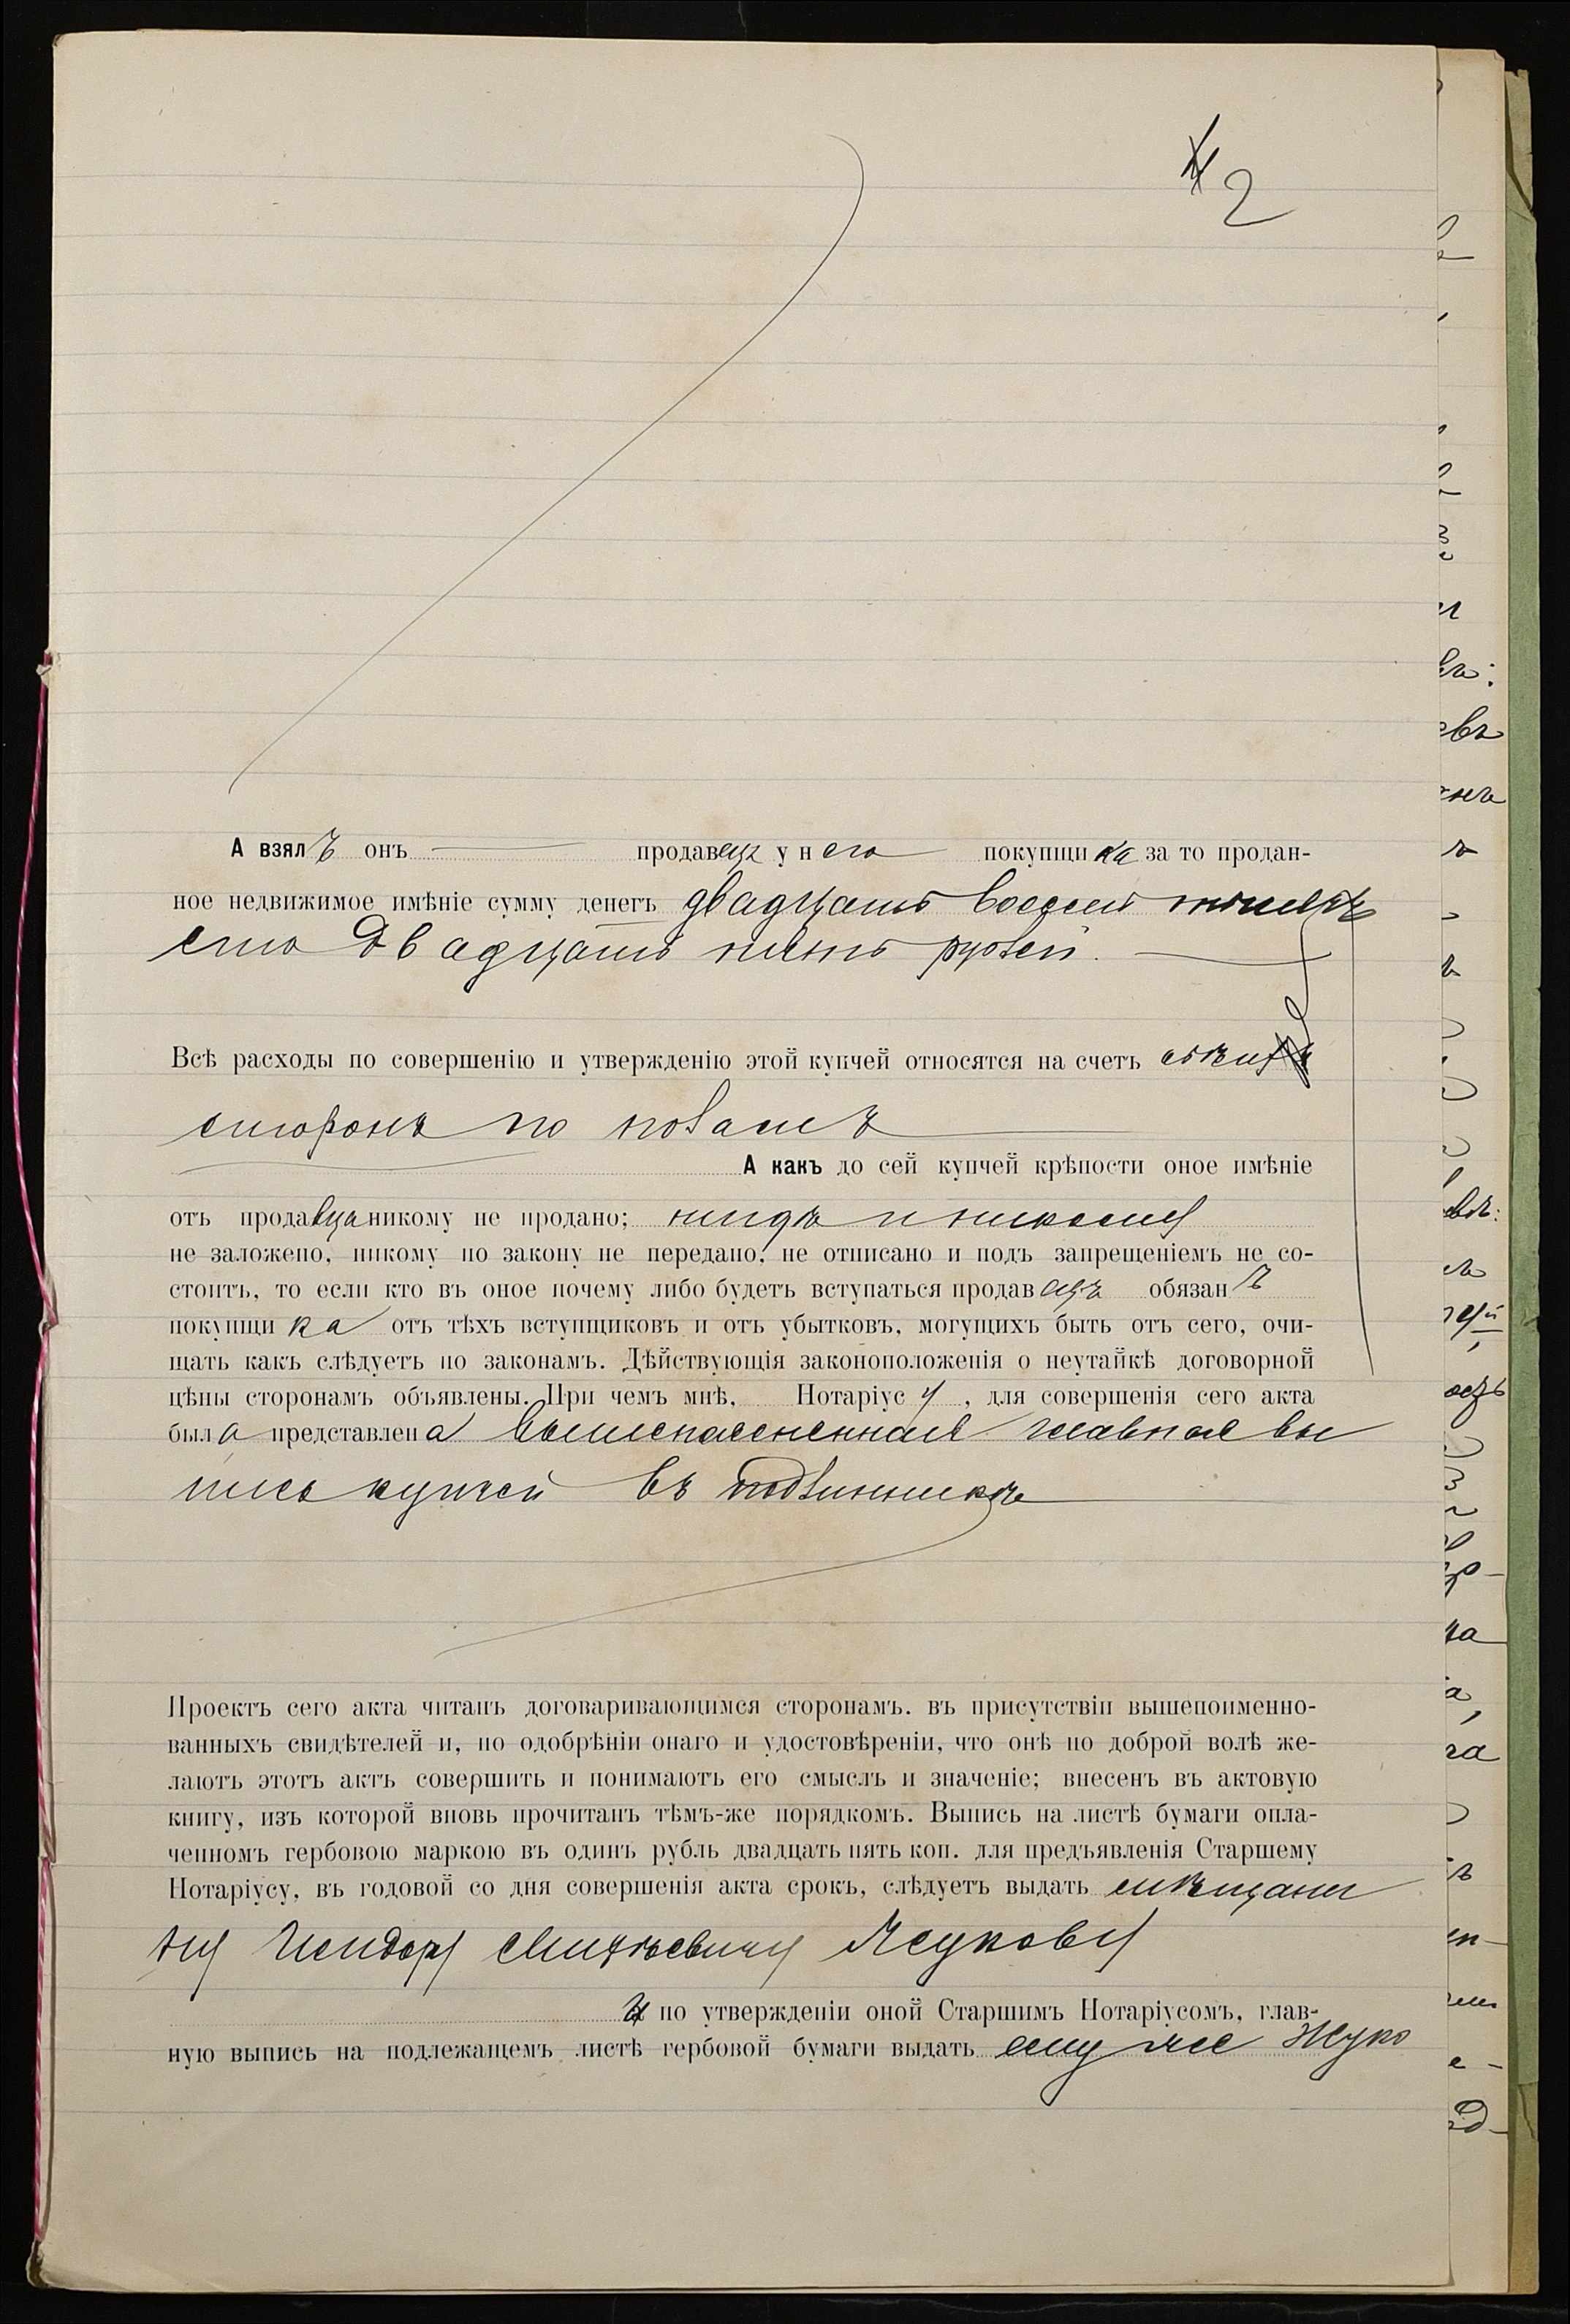 2
А взялъ онъ продавецъ у него покупщика за то продан-
ное недвижимое имѣніе сумму денегъ двадцать восемь тысячъ
сто двадцать пять рублей.
Всѣ расходы по совершенію и утвержденію этой купчей относятся на счетъ обѣихъ
сторонъ по поламъ
А какъ до сей купчей крѣпости оное имѣніе
отъ продавца никому не продано; нигдѣ и никому
не заложено, никому по закону не передано, не отписано и подъ запрещеніемъ не со-
стоитъ, то если кто въ оное почему либо будетъ вступаться продавецъ обязанъ
покупщика отъ тѣхъ вступщиковъ и отъ убытковъ, могущихъ быть отъ сего, очи-
щать какъ слѣдуетъ по законамъ. Дѣйствующія законоположенія о неутайкѣ договорной
цѣны сторонамъ объявлены. При чемъ мнѣ, Нотаріусу, для совершенія сего акта
была представлена вышепоясненная главная вы
пись купчей въ подлинникѣ
Проектъ сего акта читанъ договаривающимся сторонамъ. въ присутствіи вышепоименно-
ванныхъ свидѣтелей и, по одобрѣніи онаго и удостовѣреніи, что онѣ по доброй волѣ же-
лаютъ этотъ актъ совершить и понимаютъ его смыслъ и значеніе; внесенъ въ актовую
книгу, изъ которой вновь прочитанъ тѣмъ-же порядкомъ. Выпись на листѣ бумаги опла-
ченномъ гербовою маркою въ одинъ рубль двадцать пять коп. для предъявленія Старшему
Нотаріусу, въ годовой со дня совершенія акта срокъ, слѣдуетъ выдать мѣщани
ну Жукову
И по утвержденіи оной Старшимъ Нотаріусомъ, глав-
ную выпись на подлежащемъ листѣ гербовой бумаги выдать ему же Жуко